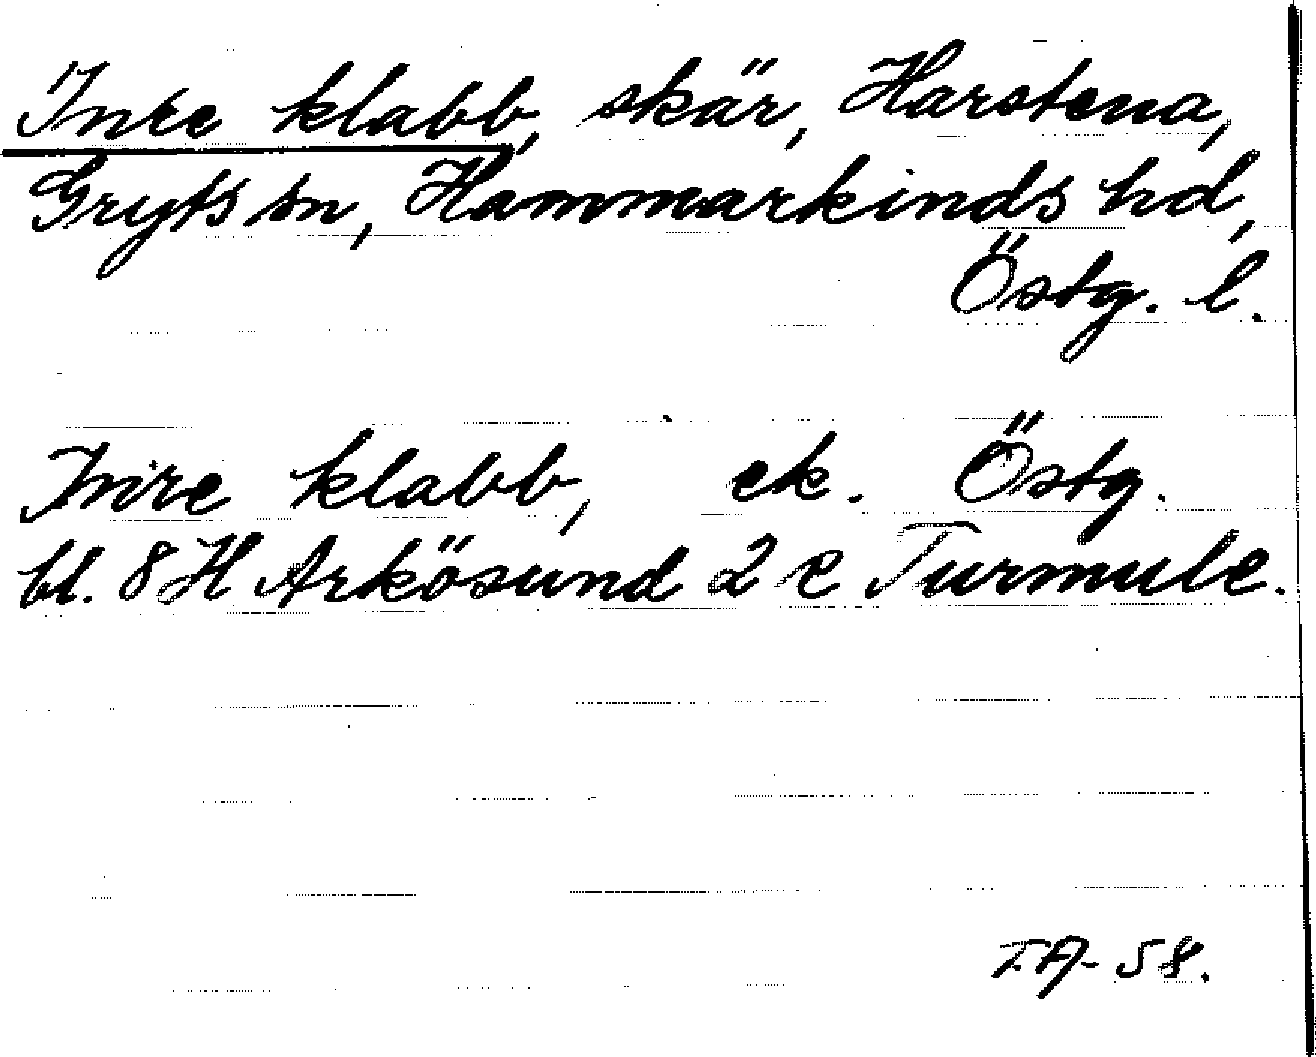 Inre klabb, skär, Harstena,
Gryts sn, Hammarkinds hd,
Östg. l.
Inre klabb, ek. Östg.
bl. 8 H Arkösund 2 c Turmule.
TA-58.